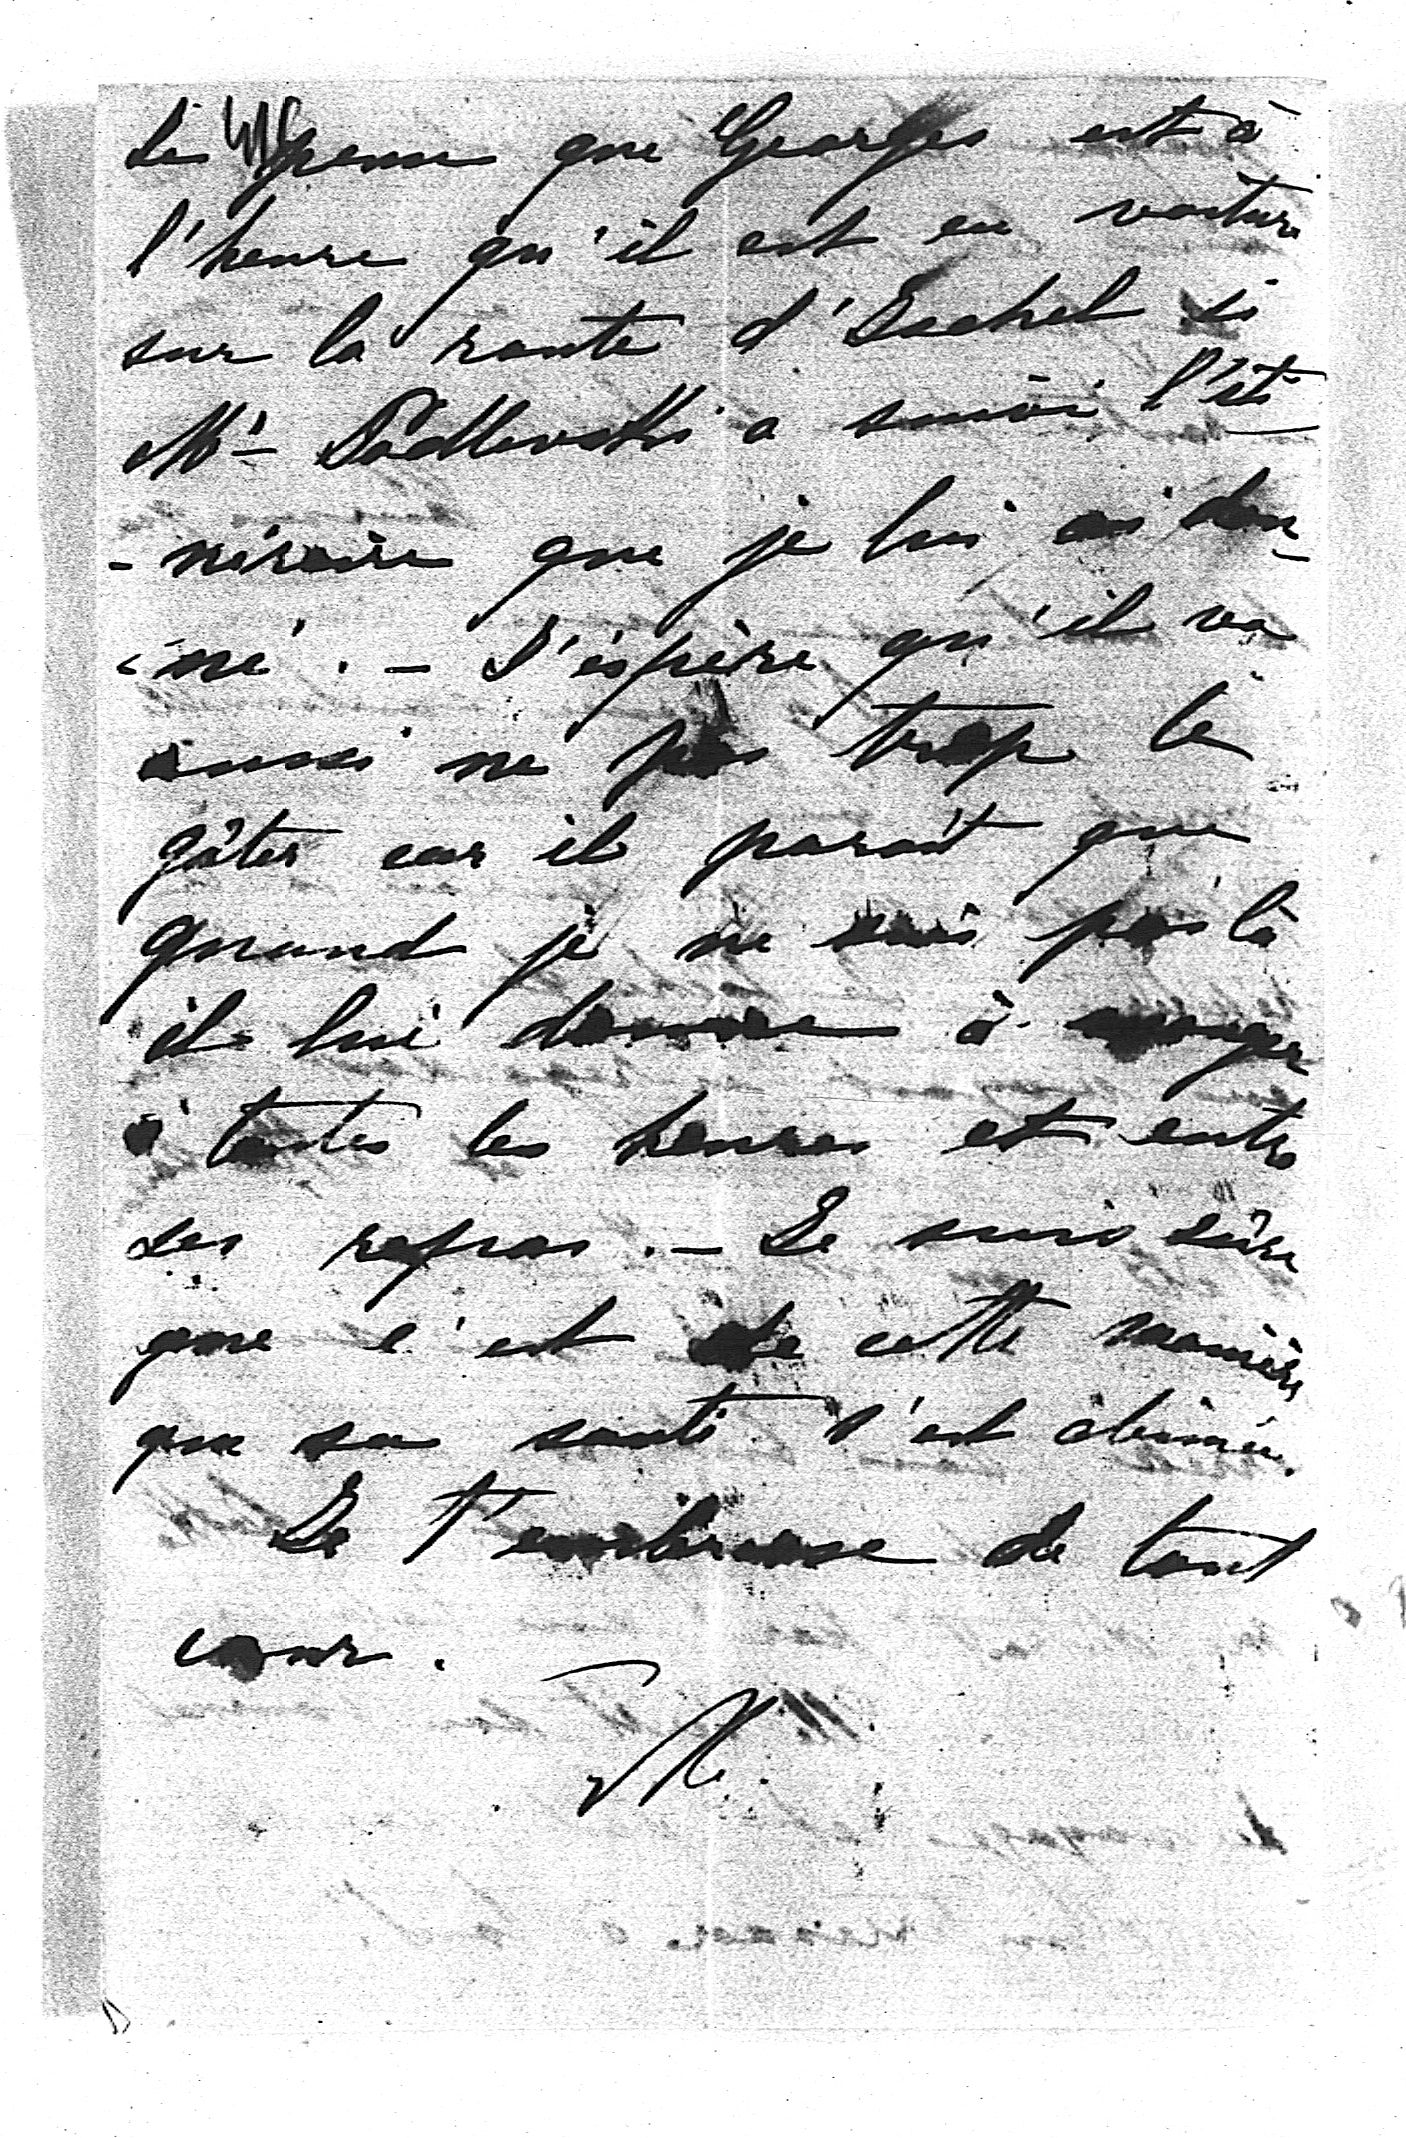 Je pense que Georges est à
l'heure qu'il est en voiture
sur la route d'Ischel si
Mr Podlevski a suivi l'iti
-néraire que je lui ai don
-né. - J'espère qu'il va
aussi ne pas trop le
gâter car il parait que
quand je ne suis pas là
il lui donne à manger
à toutes les heures et entre
ses repas. - Je suis sûre
que c'est de cette manière
que sa santé s'est abimée.
Je t'embrasse de tout
coeur.